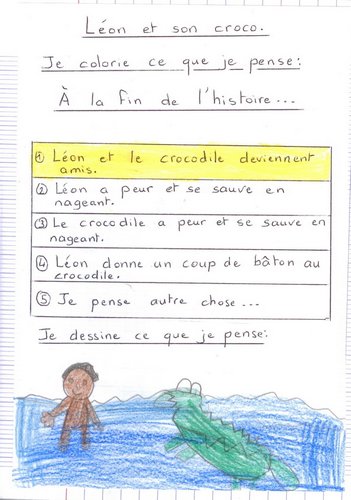 Léon et son croco.
Je colorie ce que je pense:
À la fin de l'histoire...
① Léon et le crocodile deviennent
amis.
② Léon a peur et se sauve en
nageant.
③ Le crocodile a peur et se sauve en
nageant.
④ Léon donne un coup de bâton au
crocodile.
⑤ Je pense autre chose...
Je dessine ce que je pense: